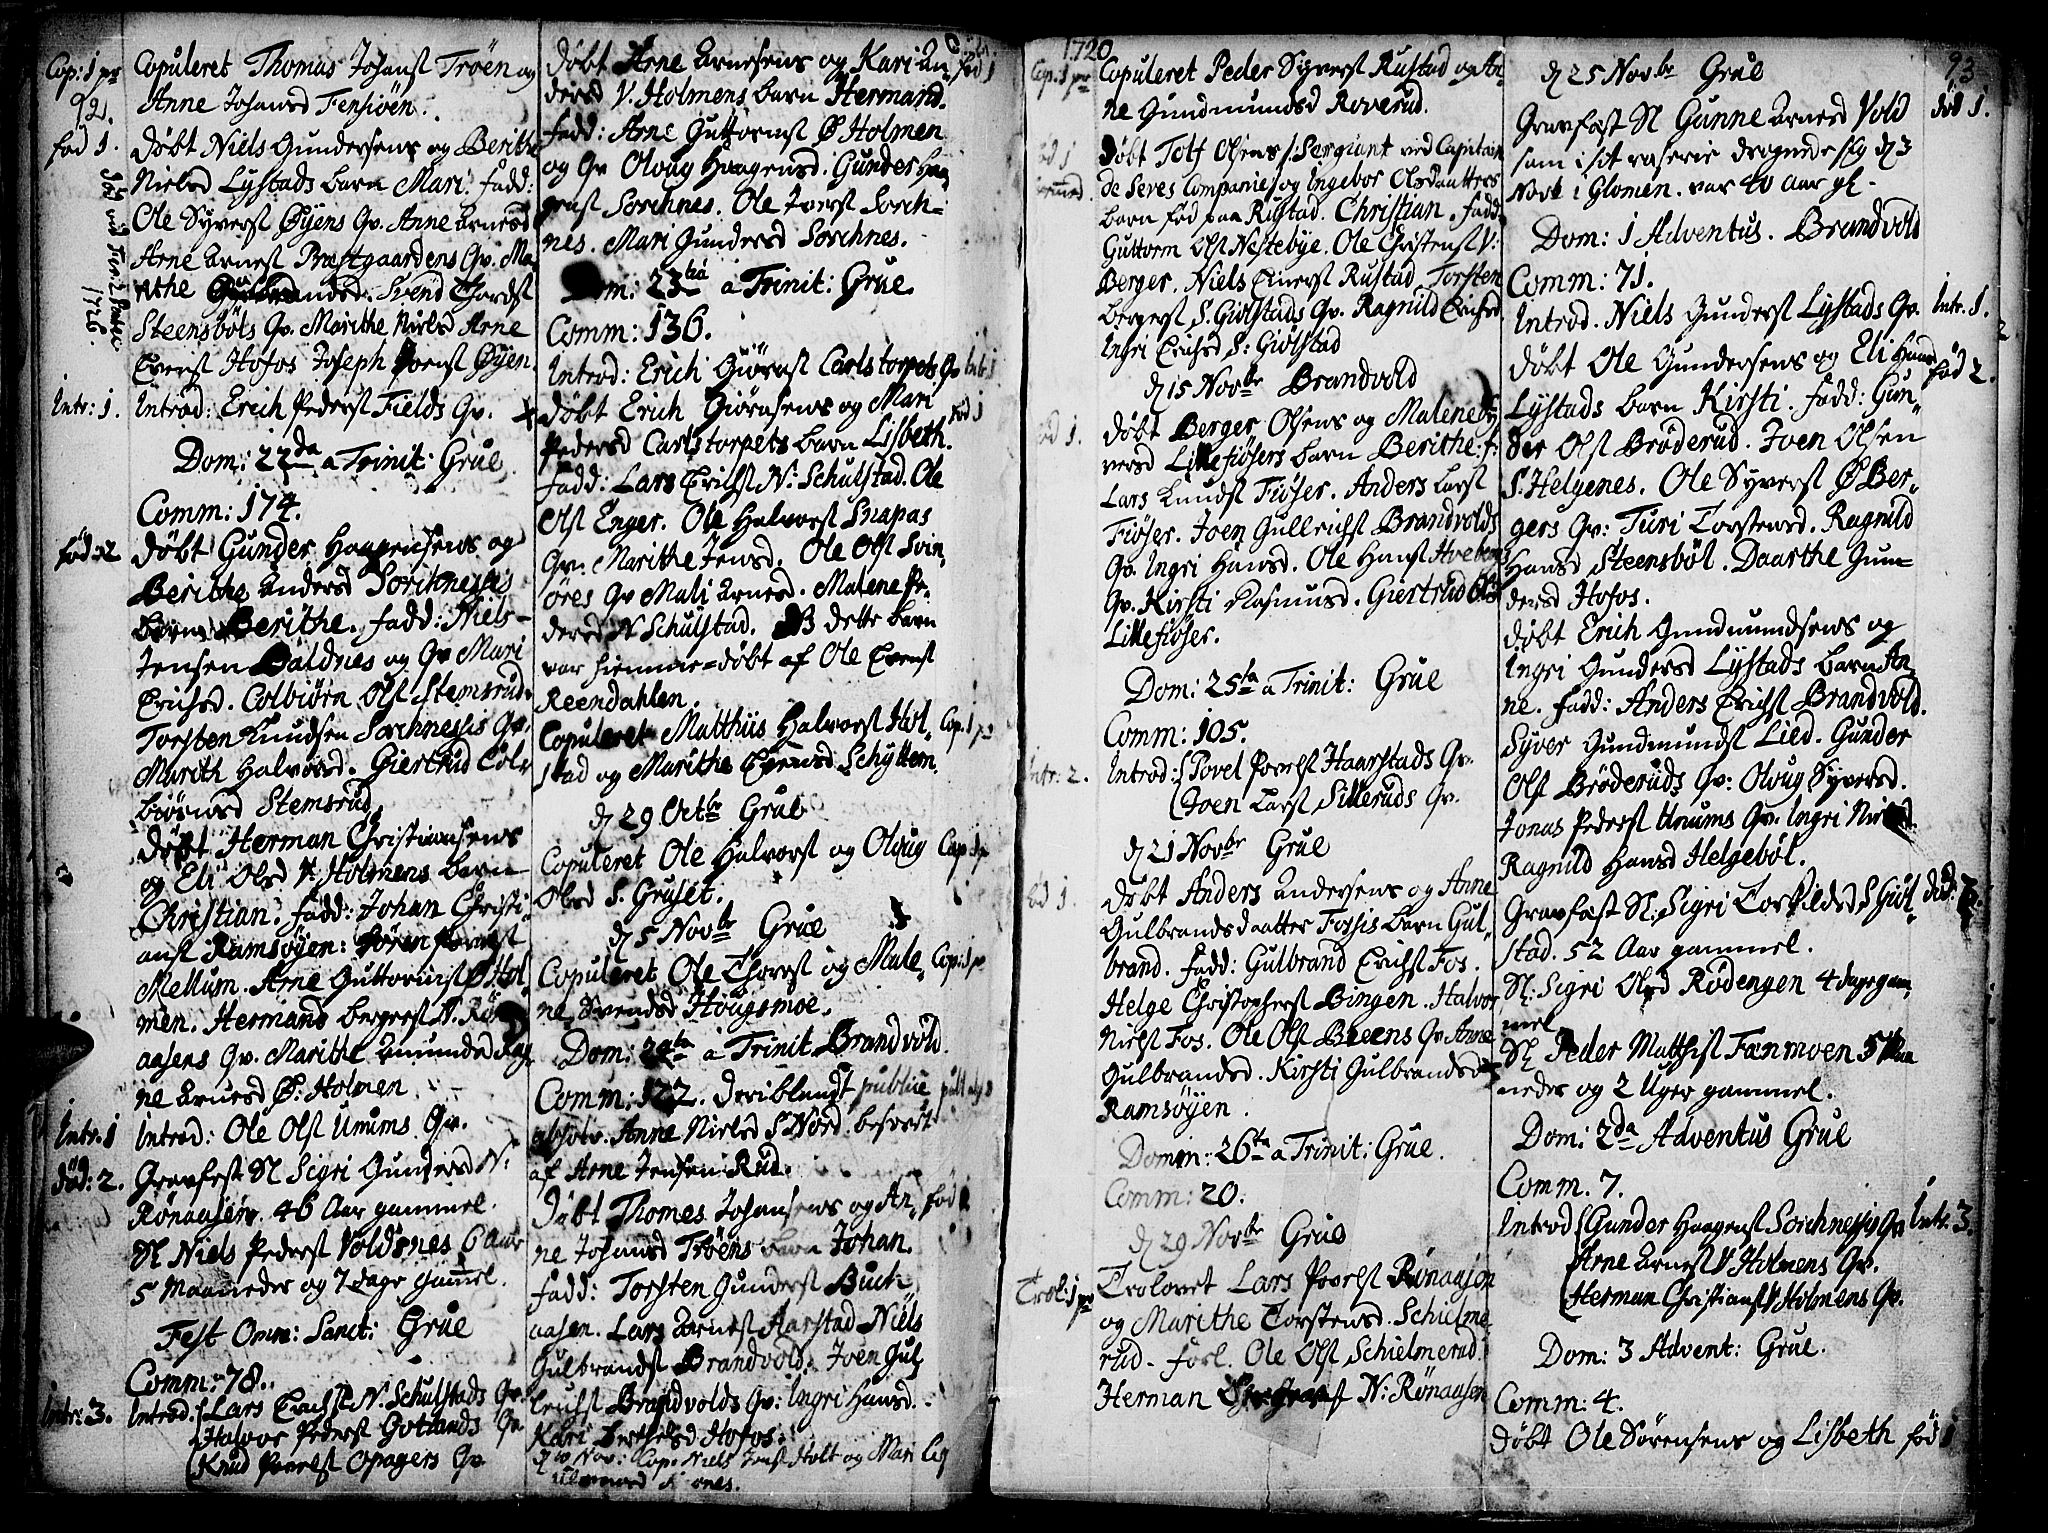 Cop: 1 pr
92.
Copuleret Thomas Johansł Tröen og
Anne Johansd Fensiöen.
fød 1.
döbt Niels Gundersens og Berithe
Nielsd Lystads barn Mari. fadd:
Ole Syversł Øyens Qv. Anne Arnesd
Arne Arnesł Præstgaardens Qv. Ma-
rthe Gulbrandsd. Svend Thordsł
Steensböls Qv. Marithe Nielsd Arne
Eversł Hofos Joseph Joensł Øyen.
1726.
Intr: 1.
Introd: Erich Pedersł Fields Qv.
Dom: 22da a Trinit: Grue.
Comm: 174.
fød: 2
döbt Gunder Haagensens og
Berithe Andersd Sorchnesses
barn Berithe. fadd: Niels
Jensen Baldnes og Qv Mari
Erichsd. Colbiörn Olsł Stemsrud
Torsten Knudsen Sorchnesses Qv.
Marith Halvorsd. Giertrud Col-
biörnsd Stemsrud
döbt Herman Christiansens
og Eli Olsd V. Holmens barn
Christian. fadd: Johan Christi-
ansł Ramsöyen: Sören Povelsł
Mellum. Arne Guttormsł Ø Hol-
men. Hermand Bergersł N. Rö-
aasens Qv. Marithe Amundsd
ne Arnesd Ø. Holmen
Intr: 1
Introd: Ole Olsł Unums Qv.
död: 2.
Gravfest Sl Sigri Gundersd N.
Rönaasen. 46 Aar gammel.
Sl Niels Pedersł Voldsnes 6 Aar
5 Maaneder og 7 dage gammel.
Fest Omn: Sanct: Grue
Comm: 78.
Intr: 3.
Introd. Lars Erichsł N. Schulstads Qv.
Halvor Pedersł Gotlands Qv
Knud Povelsł Opagers Qv.
döbt Arne Arnesens og Kari An-
dersd V. Holmens barn Hermand.
fød 1
fadd: Arne Guttormsł Ø Holmen
og Qv Olvug Haagensd. Gunder Haa-
gensł Sorchnes. Ole Iversł Sorch-
nes. Mari Gundersd Sorchnes.
Dom: 23tia a Trinit: Grue.
Comm: 136.
Introd: Erich Giörnsł Carlstorpets Qv
Intr: 1
döbt Erich Giörnsens og Mari
fød 1
Pedersd Carlstorpets barn Lisbeth.
fadd: Lars Erichsł N. Schulstad. Ole
Olsł Enger. Ole Halvorsł Snapas
Qv. Marithe Jensd. Ole Olsł Svin-
öres Qv Mali Arnesd. Malene Pe-
dersd N Schulstad. NB dette barn
var hiemme-döbt af Ole Evensł
Reendahlen.
Copuleret Matthiis Halvorsł Hol-
Cop. 1 pr
stad og Marithe Evensd. Schyttem.
d 29 Octbr Grue
Copuleret Ole Halvorsł og Olvug
Cop. 1 p
Olsd S. Gruset.
d 5 Novbr Grue
Copuleret Ole Thoresł og Male-
Cop: 1 p
ne Svendsd Hougsmoe.
Dom: 24ta a Trinit. Brandvold.
Comm: 122. deriblandt publice
absolv. Anne Nielsd S Nord. besvert
af Arne Jensen Rud.
Döbt Thomes Johansens og An-
fød 1
ne Johansd Tröens barn Johan.
fadd: Torsten Gundersł Buch-
aasen. Lars Arnesł Aarstad Niels
Gulbrandsł Brandvold. Joen Gul-
lerichsł Brandvolds Qv: Ingri Hansd.
Kari Berthelsd Hofos.
d 10 Nov: Cop. Niels Joensł Holt og Mari
1720
Cop. 1 pr
Copuleret Peder Syversł Rustad og An-
ne Gundmundsd Roverud.
fød 1
döbt Tolf Olsens /: Sergiant ved Capitain
de Seves Companie :/ og Ingebor Olsdautters
barn fød paa Rustad. Christian. fadd:
Guttorm Olsł Nestebye. Ole Christensł V:
Berger. Niels Einersł Rustad Torsten
Bergersł S. Giölstads Qv. Ragnild Erichsd
Ingri Erichsd S: Giölstad
d 15 Novbr Brandvold
fød 1.
döbt Berger Olsens og Malene
versd Lillefiösers barn Berithe. f:
Lars Knudsł Fiöser. Anders Larsł
Fiöser. Joen Gullerichsł Brandvolds
Qv. Ingri Hansd. Ole Hansł Hveberg
Qv. Kirsti Rasmusd. Giertrud Olsd
Lillefiöser.
Dom: 25ta a Trinit: Grue
Comm: 105.
Intr: 2.
Introd: Povel Povelsł Haarstads Qv.
Joen Larsł Silleruds Qv.
d 21 Novbr Grue
fød 1.
döbt Anders Andersens og Anne
Gulbrandsdaatter Fossis barn Gul-
brand. fadd: Gulbrand Erichsł Fos.
Helge Christophersł Bingen. Halvor
Nielsł Fos. Ole Olsł Breens Qv Anne
Gulbrandsd. Kirsti Gulbrandsd
Ramsöyen.
Domin: 26ta a Trinit: Grue.
Comm: 20.
d 29 Novbr Grue
Trol: 1 pr
Trolovet Lars Povelsł Rönaasen
og Marithe Torstensd. Schielme-
rud. forl. Ole Olsł Schielmerud.
Herman N: Rönaasen
93
d 25 Novbr Grue
död 1.
Gravfæst Sl Gunne Arnesd Vold
som i sit raserie drognede sig d 3
Novb i Glomen. var 40 aar gl.
Dom: 1 Adventus. Brandvold
Comm: 71.
Introd. Niels Gundersł Lystads Qv.
Intr. 1.
döbt Ole Gundersens og Eli Hansd
fød 2.
Lystads barn Kirsti. fadd: Gun-
der Olsł Bröderud. Joen Olsen
S. Helgenes. Ole Syversł Ø Ber-
gers Qv: Turi Torstensd. Ragnild
Hansd Steensböl. Daarthe Gun-
dersd Hofos.
döbt Erich Gundmundsens og
Ingri Gundersd Lystads barn An-
ne. fadd: Anders Erichsł Brandvold.
Syver Gundmundsł Lied. Gunder
Olsł Bröderuds Qv: Olvug Syversd.
Jonas Pedersł Unums Qv. Ingri Nielsd.
Ragnild Hansd Helgeböl.
Gravfæst Sl. Sigri Torkildsd S Giöl-
död: 3.
stad. 52 Aar gammel.
Sl: Sigri Olsd Rödengen 4 dage gam-
mel
Sl Peder Matthisł Fænmoen 5 Maa-
neder og 2 Uger gammel.
Dom: 2da Adventus Grue
Comm. 7.
Introd Gunder Haagensł Sorchnesses Qv
Intr. 3.
Arne Arnesł V Holmens Qv.
Herman Christiansł V Holmens Qv.
Dom: 3 Advent: Grue.
Comm: 4.
döbt Ole Sörensens og Lisbeth
fød 1